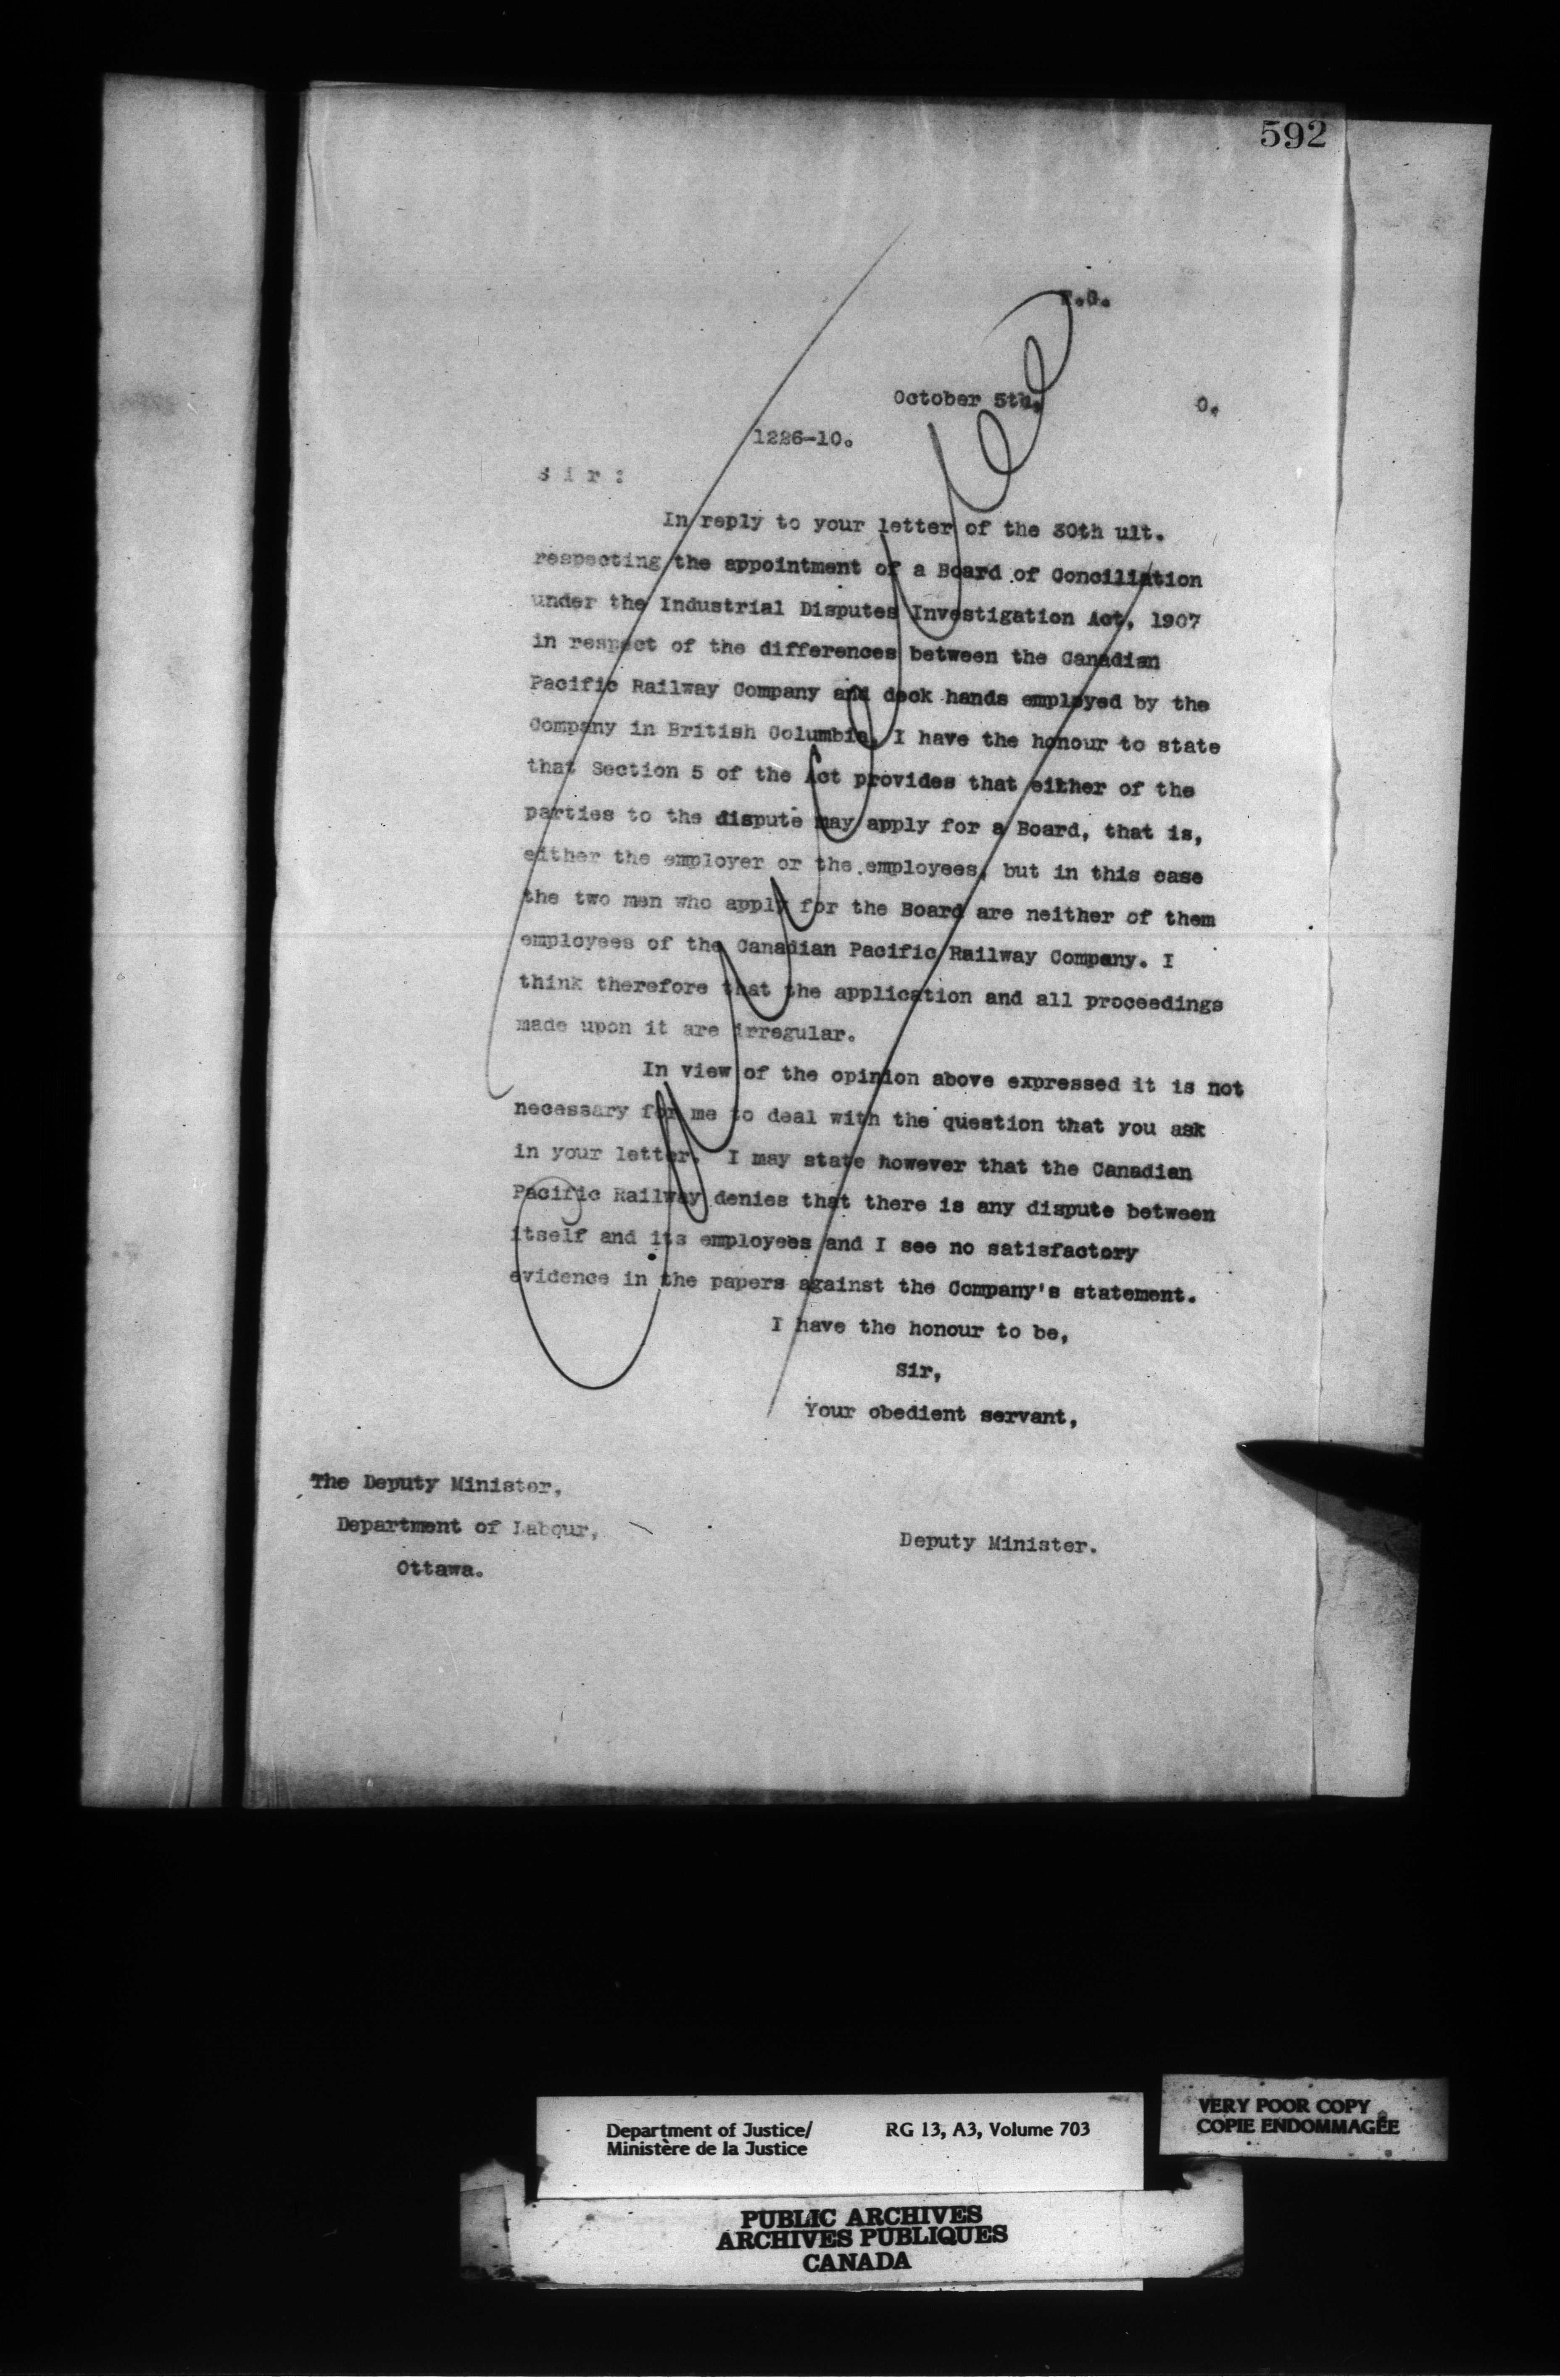 592
October 5th, 0.
1226-10.
S i r :
In reply to your letter of the 30th ult.
respecting the appointment of a Board of Conciliation
under the Industrial Disputes Investigation Act, 1907
in respect of the differences between the Canadian
Pacific Railway Company and deck hands employed by the
Company in British Columbia, I have the honour to state
that Section 5 of the Act provides that either of the
parties to the dispute may apply for a Board, that is,
either the employer or the employees, but in this case
the two men who apply for the Board are neither of them
employees of the Canadian Pacific Railway Company. I
think therefore that the application and all proceedings
made upon it are irregular.
In view of the opinion above expressed it is not
necessary for me to deal with the question that you ask
in your letter. I may state however that the Canadian
Pacific Railway denies that there is any dispute between
itself and its employees and I see no satisfactory
evidence in the papers against the Company's statement.
I have the honour to be,
Sir,
Your obedient servant,
The Deputy Minister,
Department of Labour,
Ottawa.
Deputy Minister.
Cancelled
Department of Justice/
Ministère de la Justice
RG 13, A3, Volume 703
VERY POOR COPY
COPIE ENDOMMAGÊE
PUBLIC ARCHIVES
ARCHIVES PUBLIQUES
CANADA